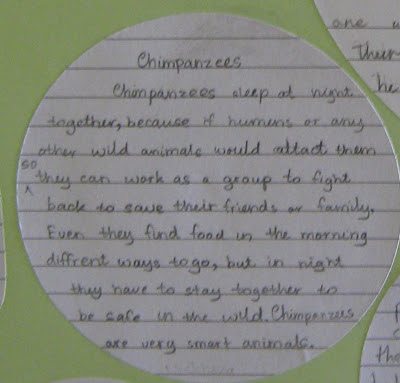 Chimpanzees
Chimpanzees sleep at night
together, because if humens or any
other wild animals would attact them
so
they can work as a group to fight
back to save their friends or family.
Even they find food in the morning
diffrent ways to go, but in night
they have to stay together to
be safe in the wild. Chimpanzees
are very smart animals.
one
their
he